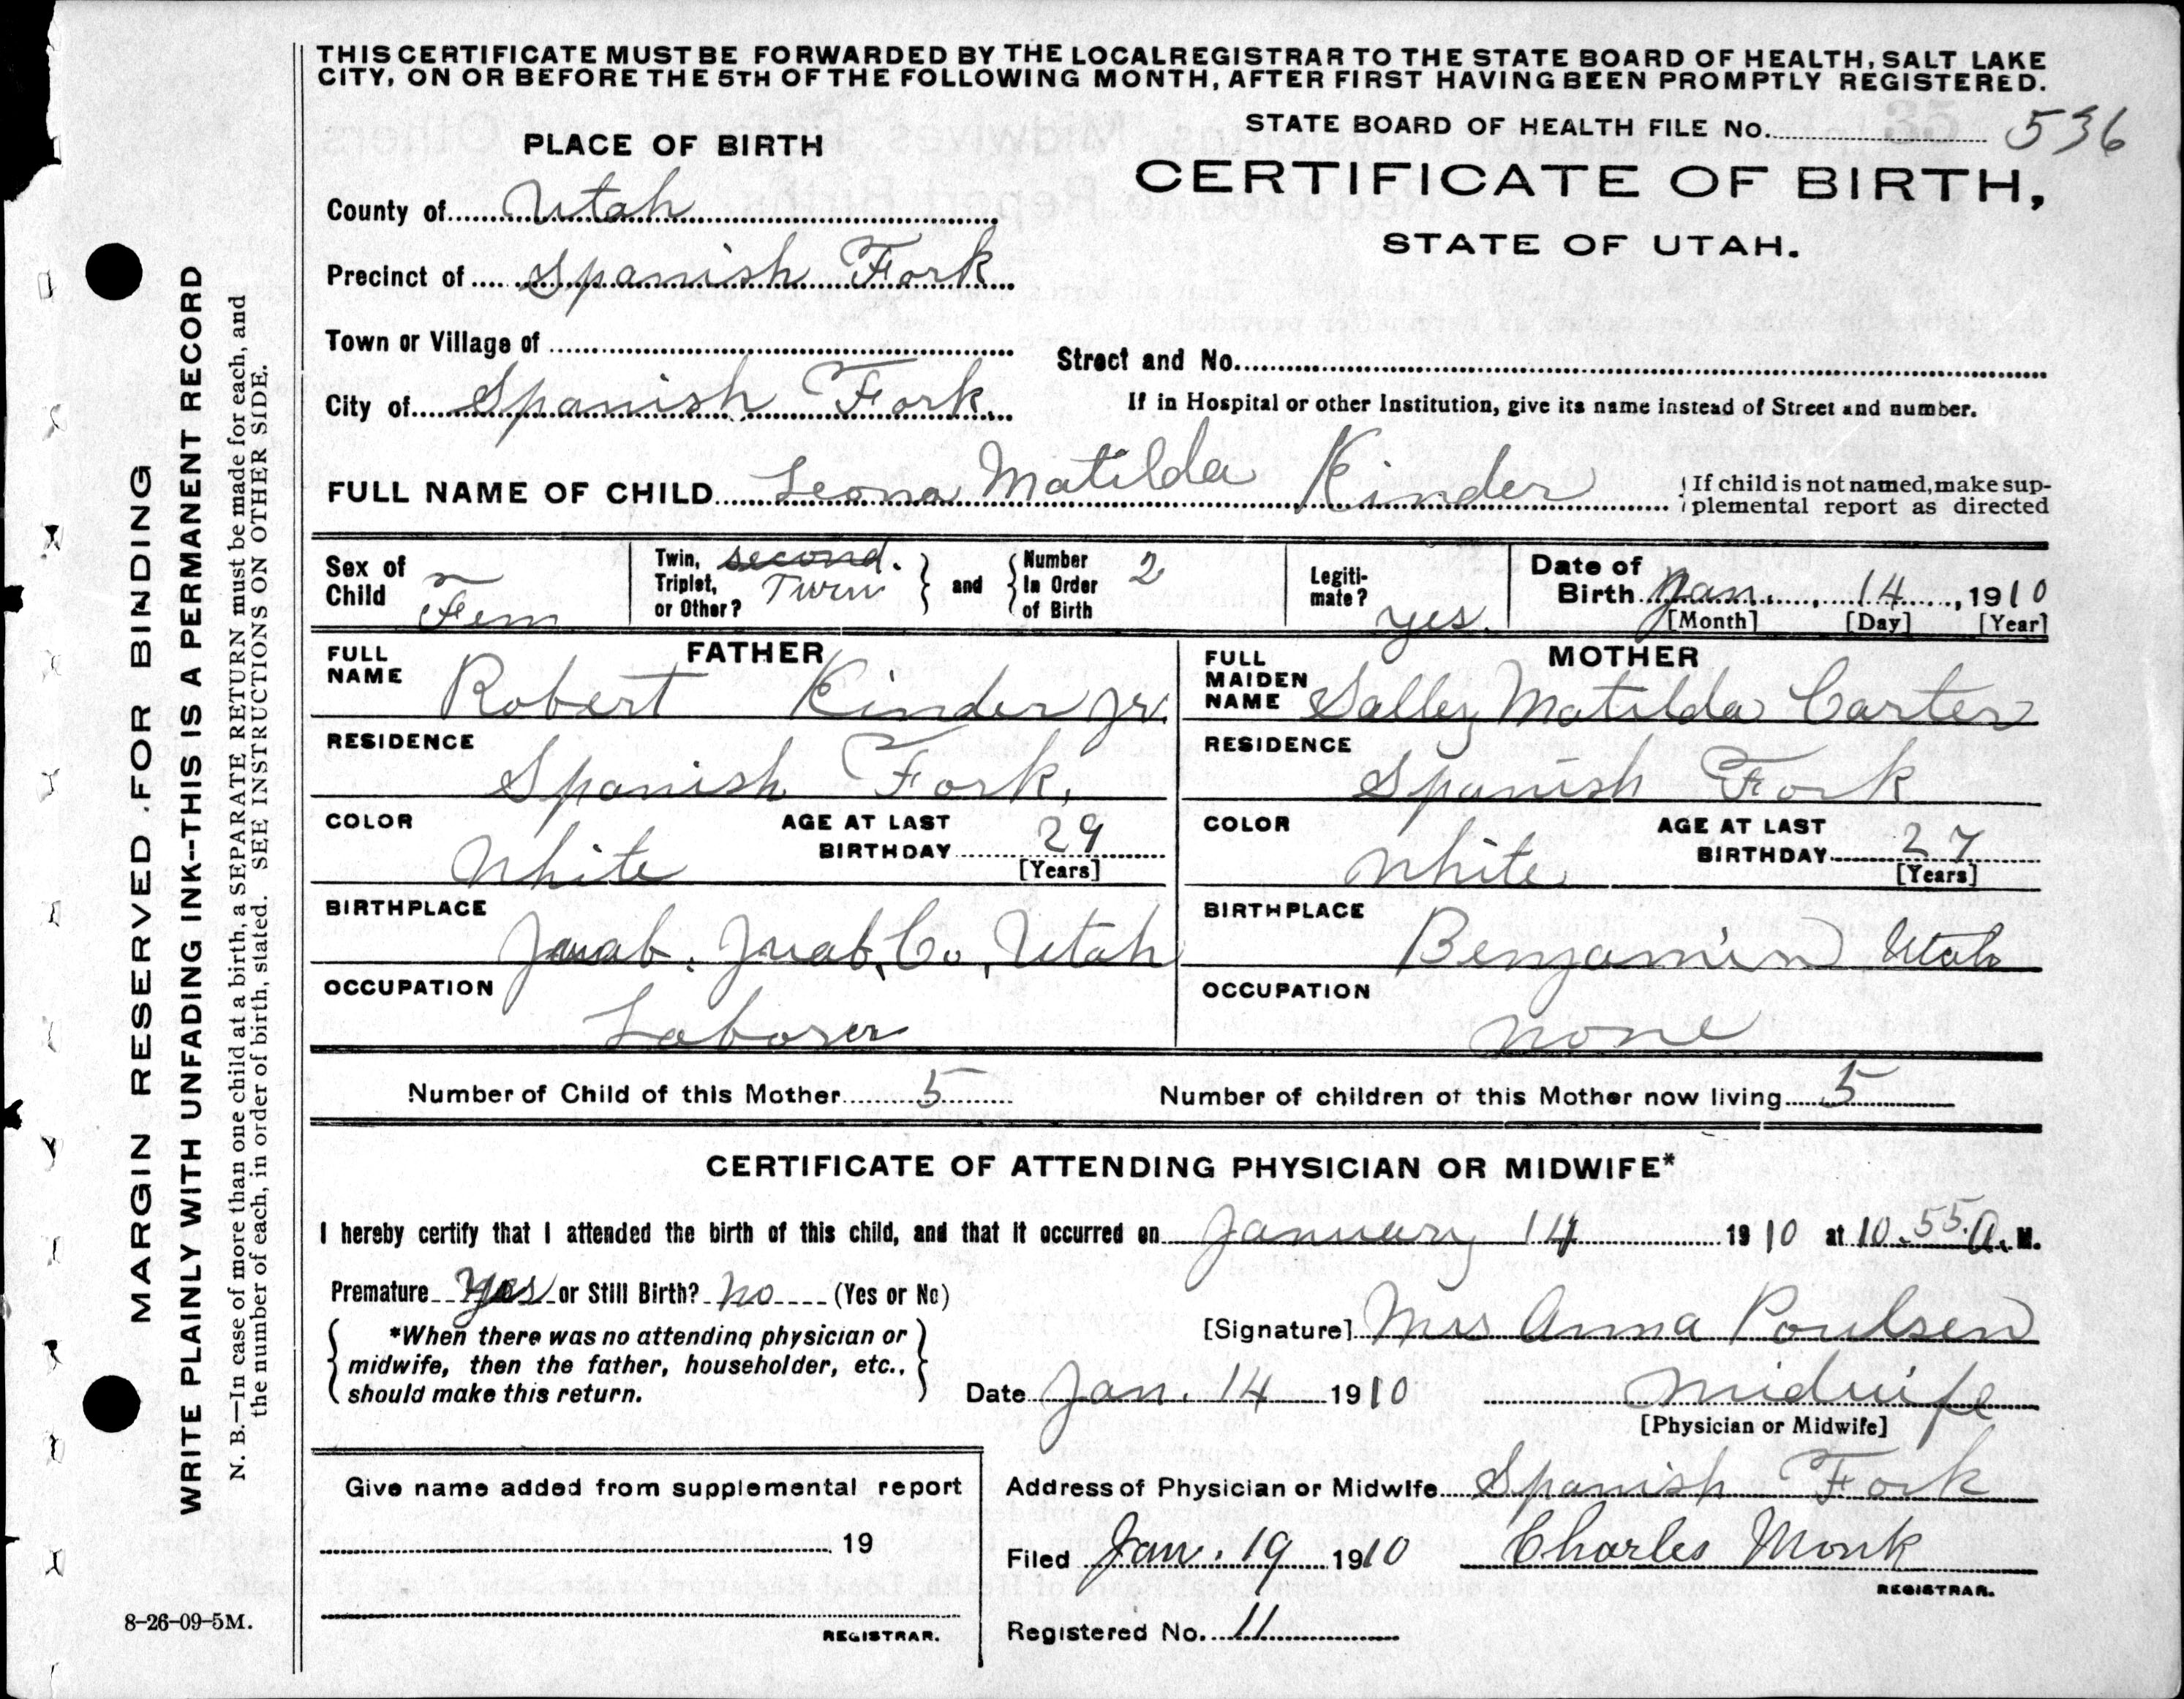 THIS CERTIFICATE MUST BE FORWARDED BY THE LOCAL REGISTRAR TO THE STATE BOARD OF HEALTH, SALT LAKE
CITY, ON OR BEFORE THE 5TH OF THE FOLLOWING MONTH, AFTER FIRST HAVING BEEN PROMPTLY REGISTERED.
STATE BOARD OF HEALTH FILE No. 536
PLACE OF BIRTH
CERTIFICATE OF BIRTH,
STATE OF UTAH.
County of Utah
Precinct of Spanish Fork
Town or Village of
Street and No.
City of Spanish Fork.
If in Hospital or other Institution, give its name instead of Street and number.
FULL NAME OF CHILD Leona Matilda Kinder
If child is not named, make sup-
plemental report as directed
Sex of Child Fem
Twin, Triplet, or Other? second. Twin
and Number In Order of Birth 2
Legiti-mate? yes.
Date of Birth Jan. 14, 1910
[Month] [Day] [Year]
FATHER
FULL NAME Robert Kinder Jr.
RESIDENCE
Spanish Fork.
COLOR White
AGE AT LAST BIRTHDAY 29
[Years]
BIRTHPLACE
Juab, Juab, Co., Utah
OCCUPATION
Laborer
MOTHER
FULL MAIDEN NAME Salley Matilda Carter
RESIDENCE
Spanish Fork
COLOR White
AGE AT LAST BIRTHDAY 27
[Years]
BIRTHPLACE
Benjamin Utah
OCCUPATION
none
Number of Child of this Mother 5
Number of children of this Mother now living 5
CERTIFICATE OF ATTENDING PHYSICIAN OR MIDWIFE*
I hereby certify that I attended the birth of this child, and that it occurred on January 14 1910 at 10.55. A. M.
Premature Yes or Still Birth? No (Yes or No)
*When there was no attending physician or
midwife, then the father, householder, etc.,
should make this return.
[Signature] Mrs Anna Poulsen
Date Jan. 14 1910 Midwife
[Physician or Midwife]
Give name added from supplemental report
19
REGISTRAR.
Address of Physician or Midwife Spanish Fork
Filed Jan. 19 1910 Charles Monk
REGISTRAR.
Registered No. 11
MARGIN RESERVED FOR BINDING
WRITE PLAINLY WITH UNFADING INK--THIS IS A PERMANENT RECORD
N. B.—In case of more than one child at a birth, a SEPARATE RETURN must be made for each, and
the number of each, in order of birth, stated. SEE INSTRUCTIONS ON OTHER SIDE.
8-26-09-5M.